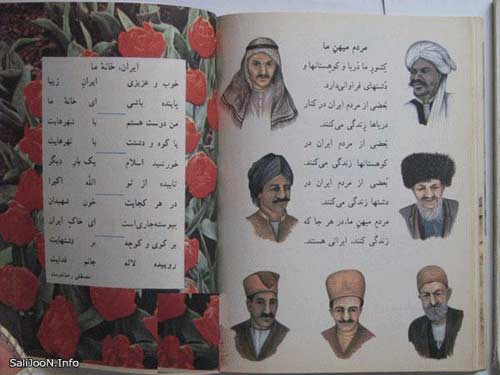 مردم میهن ما
کشور ما دریا و کوهستانها و
دشتهای فراوانی دارد.
بعضی از مردم ایران در کنار
دریاها زندگی می‌کنند.
بعضی از مردم ایران در
کوهستانها زندگی می‌کنند.
بعضی از مردم ایران در
دشتها زندگی می‌کنند.
مردم میهن ما، در هر جا که
زندگی کنند، ایرانی هستند.
ایران، خانهٔ ما
خوب و عزیزی ایران زیبا
پاینده باشی ای خانهٔ ما
من دوست هستم با شهرهایت
با کوه و دشتت با نهرهایت
خورشید اسلام یک بار دیگر
تابیده از تو الله اکبر!
در هر کجایت خون شهیدان
پیوسته جاری است ای خاک ایران
بر کوی و کوچه بر دشتهایت
روییده لاله جانم فدایت
مصطفی رحماندوست
SaliJooN.Info